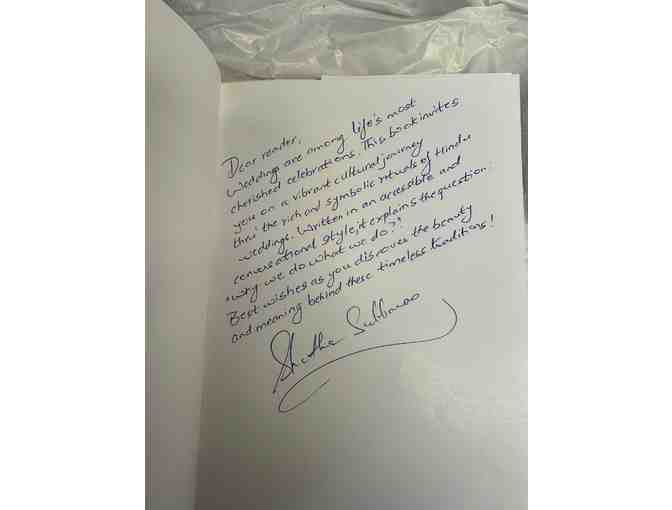 Dear reader,
Weddings are among life's most
cherished celebrations. This book invites
you on a vibrant cultural journey
thru' the rich and symbolic rituals of Hindu
weddings. Written in an accessible and
conversational style, it explains the question:
"why we do what we do?"
Best wishes as you discover the beauty
and meaning behind these timeless traditions!
Subbarao